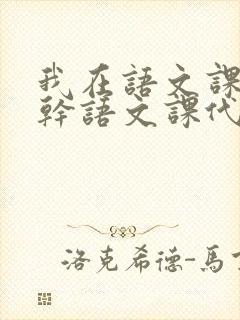 我在語文課
幹語文課代
洛克希德-馬